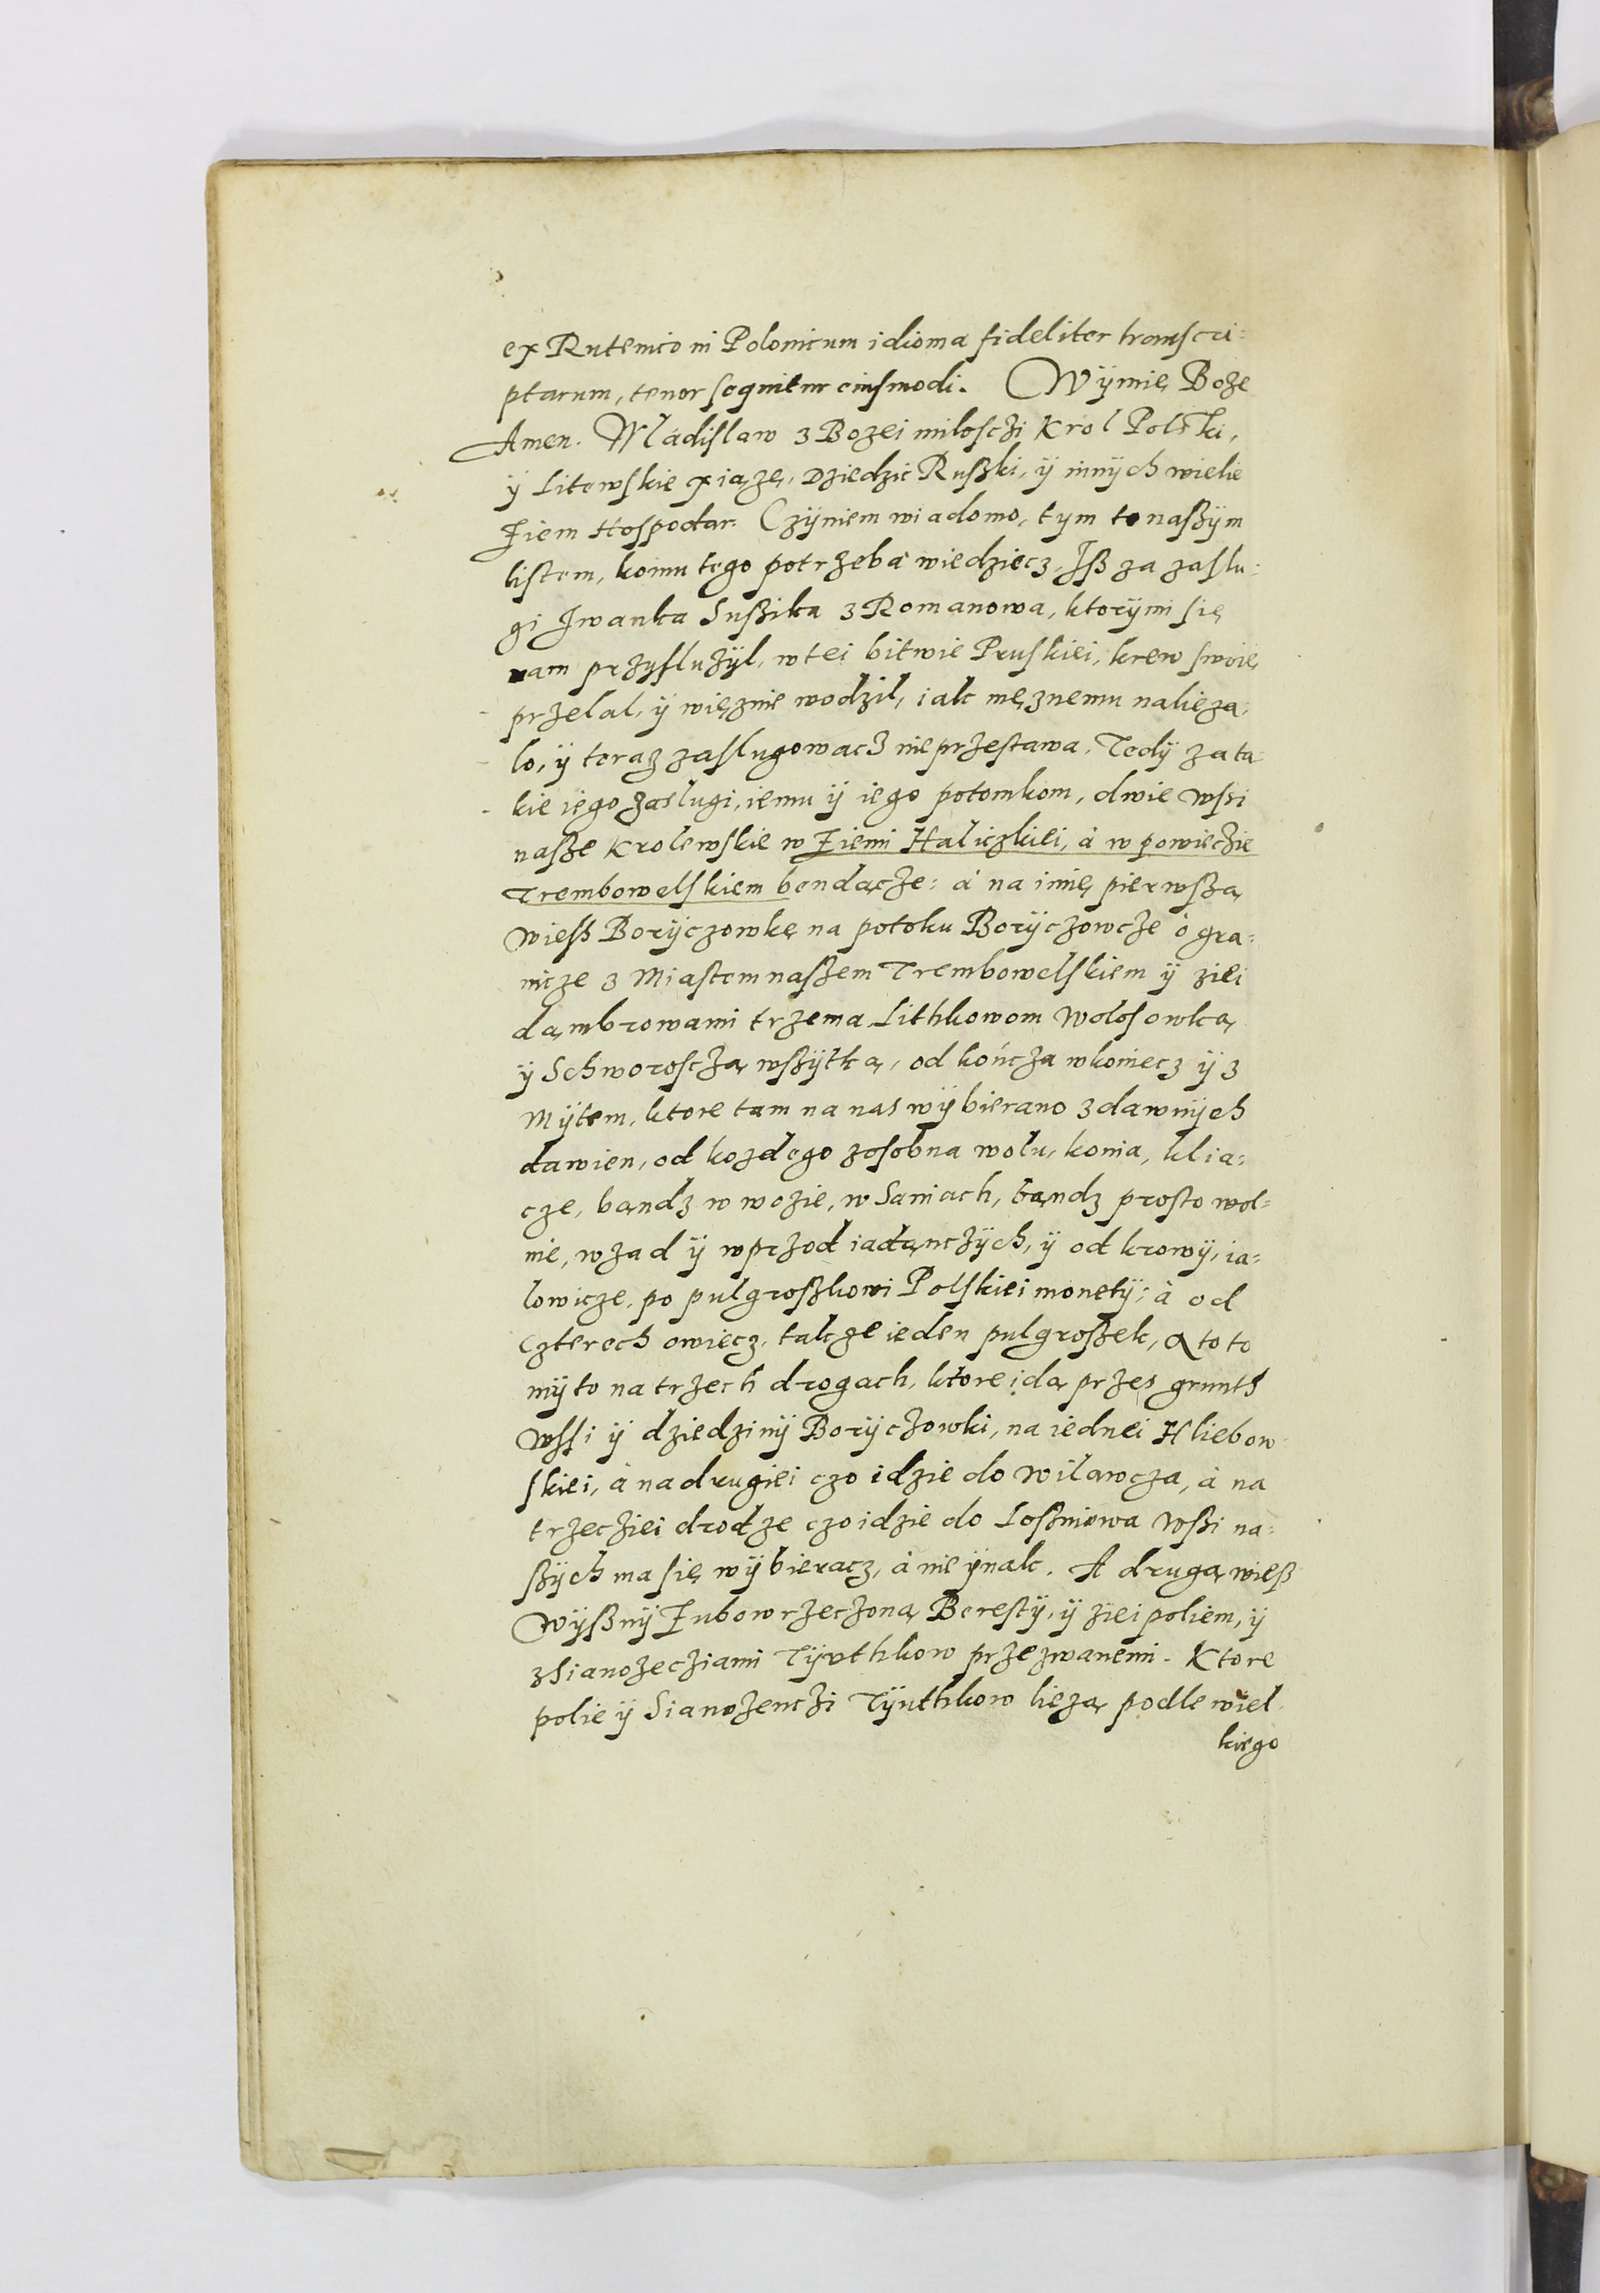 ex Rutenico in Polonicum idioma fideliter transcri:
ptarum, tenor sequitur eiusmodi. Wÿmię Boże
Amen. Wladislaw z Bozei miłosczi Krol Polski,
ÿ Litewskie xiąże, Dziedzic Rußki, ÿ innÿch wielie
Ziem Hospodar. Czÿniem wiadomo, tym to naßÿm
listem, komu tego potrzeba wiedziecz, Iß za zaslu:
gi Iwanka Sußika z Romanowa, ktorÿmi się
nam przysluzÿl, w tei bitwie Pruskiei, krew swoię
przelal, ÿ więznie wodzil, iak męznemu nalieża:
lo, ÿ teraz zaslugowacz nie przestawa, Tedÿ za ta
kie iego zaslugi, iemu ÿ iego potomkom, dwie wßi
naße Krolewskie w Ziemi Haliczkiei, à w powieczie
Trembowelskiem bendącze: à na imię pierwßą
wieß Borÿczowkę na potoku Borÿczowcze ò gra:
nicze z Miastem naßem Trembowelskiem ÿ ziei
dąmbrowami trzema Lithkowom Wolosowką
ÿ Schworosczą wßÿtką, od kończa wkoniecz ÿ z
Mÿtem, ktore tam na nas wÿbierano z dawnÿch
dawien, od kozdego zosobna wolu, konia, klia:
cze, bąndz w wozie, w Saniach, bąndz prosto wol:
nie, wzad ÿ wprzod iadąnczÿch, ÿ od krowÿ, ia:
lowicze, po pulgroßkowi Polskiei monetÿ; à od
czterech owiecz, takze ieden pulgroßek, A to to
mÿto na trzech drogach, ktore idą przes grunth
Wssi ÿ dziedzinÿ Borÿczowki, na iednei Hliebow
skiei, à na drugiei czo idzie do Wilawcza, à na
trzecziei drodze czo idzie do Loßniowa Wßi na:
ßÿch ma się wÿbieracz, à nie ÿnak. A drugą wieß
Wÿßnÿ Zubow rzeczoną Berestÿ, ÿ ziei poliem, ÿ
z Sianożecziami Tÿuthkow przezwanemi. Ktore
polie ÿ Sianożenczi Tÿuthkow lieżą podle wiel
kiego